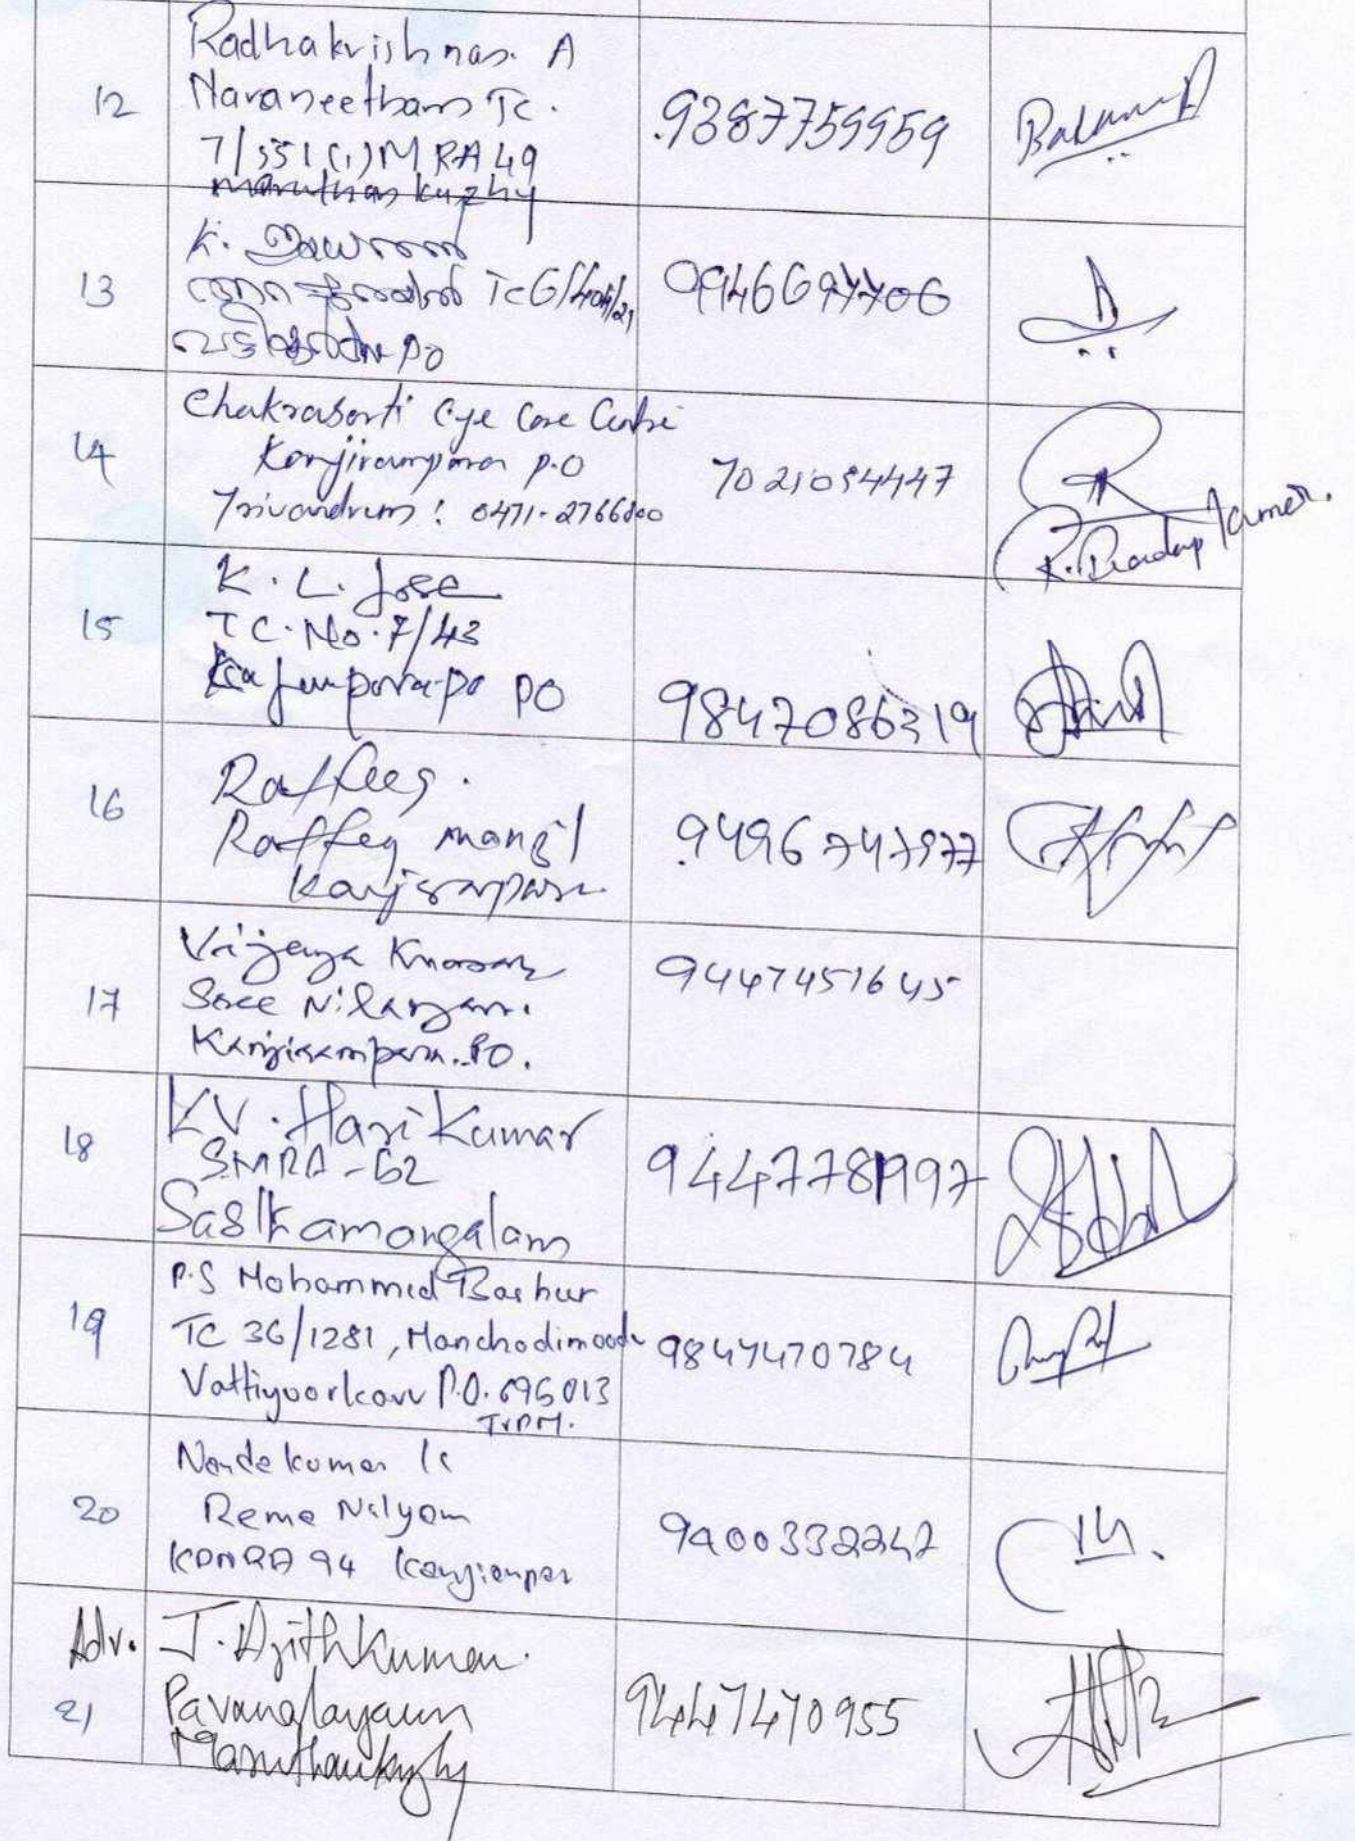 12
Radhakrishnan. A
Navaneetham TC.
7/551(1) MRA 49
maruthankuzhy
9387759959
13
K.
TC6/404/21
PO
9946697706
14
Chakrabarti Eye Care Centre
Kanjirampara P.O
Trivandrum : 0471-2766800
7021094447
R. Pradeep Kumar.
15
K. L. Jose
TC. No. 7/43
PO
9847086319
16
Raffeeq.
Raffeeq manzil
Kanjirampara
9496747977
17
Vijaya Kumar
Sree Nilayam.
Kanjirampara. PO.
9447451645
18
KV. Hari Kumar
SMRA-62
Sasthamangalam
9447781997
19
P.S Mohammed Bashur
TC 36/1281, Manchadimoodu
Vattiyoorkavu P.O. 695013
TVPM.
9847470784
20
Nandakumar K
Rema Nilyam
94 Kanjirampara
9400332247
Adv. J. Ajithkumar.
21
Pavanalayam
Maruthankuzhy
9447470955